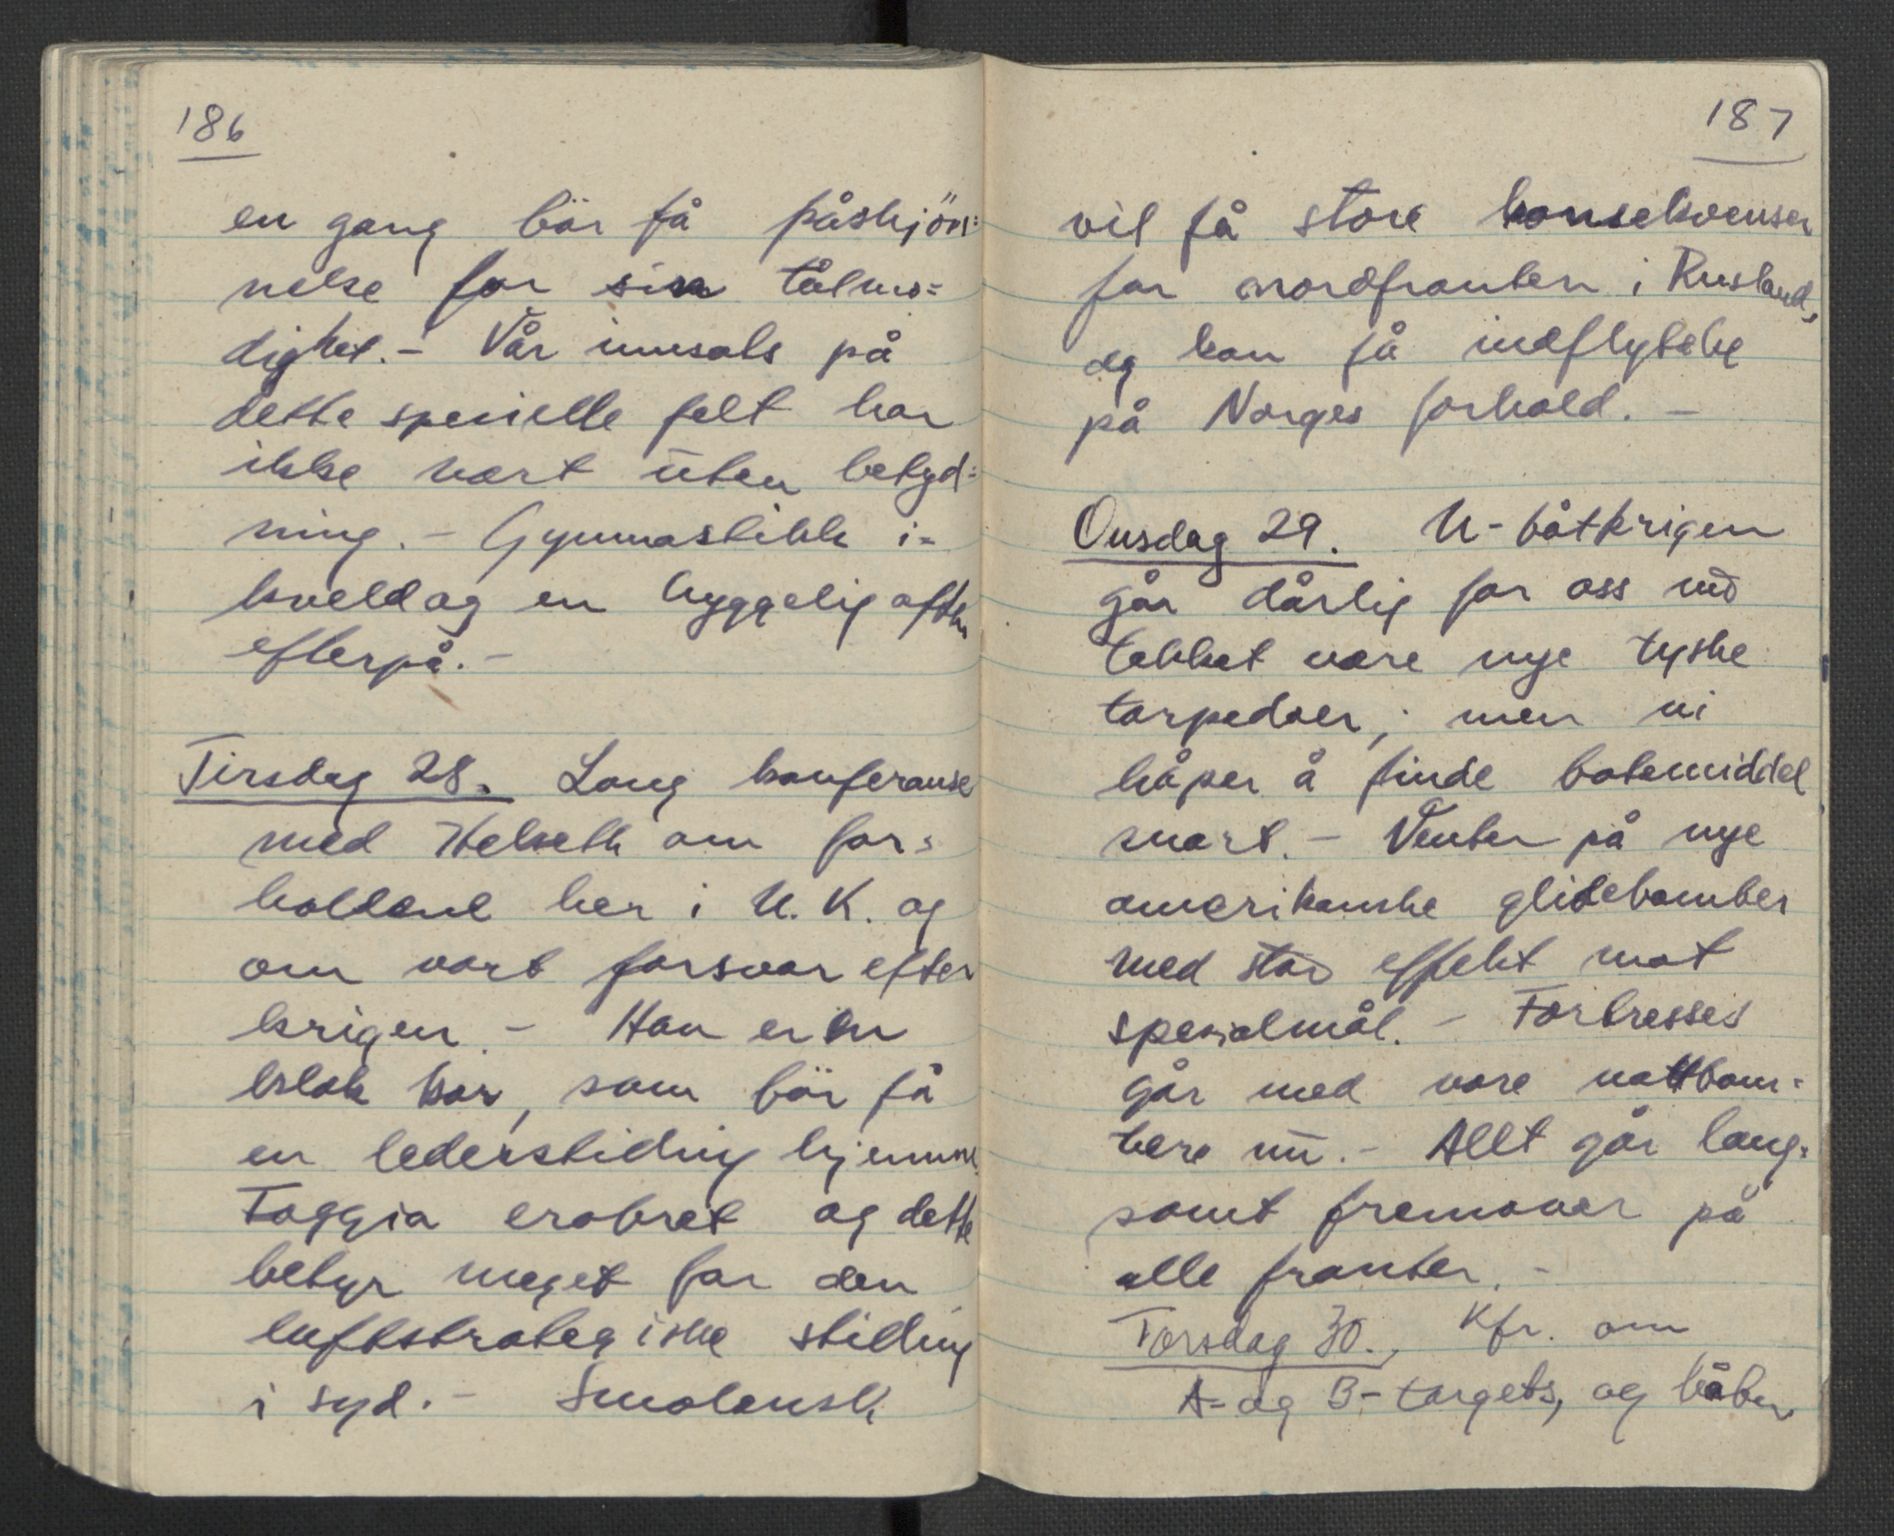 186
en gang bör få påskjön=
nelse for sin tålmo=
dighet. – Vår innsats på
dette spesielle felt har
ikke vært uten betyd=
ning. – Gymnastikk i=
kveld og en hyggelig aften
efterpå. –
Tirsdag 28. Lang konferanse
med Helseth om for=
holdene her i U.K. og
om vort forsvar efter
krigen. – Han er en
klok kar, som bör få
en lederstilling hjemme.
Foggia erobret og dette
betyr meget for den
luftstrategiske stilling
i syd. – Smolensk
187
vil få store konsekvenser
for nordfronten i Rusland,
og kan få indflytelse
på Norges forhold. –
Onsdag 29. U-båtkrigen
går dårlig for oss ved
takket være nye tyske
torpedoer; men vi
håper å finde botemiddel
snart. – Venter på nye
amerikanske glidebomber
med stor effekt mot
spesialmål. – Fortresses
går med våre nattbom=
bere nu. – Allt går lang=
somt fremover på
alle fronter. –
Torsdag 30. Kfr. om
A- og B-targets, og håber